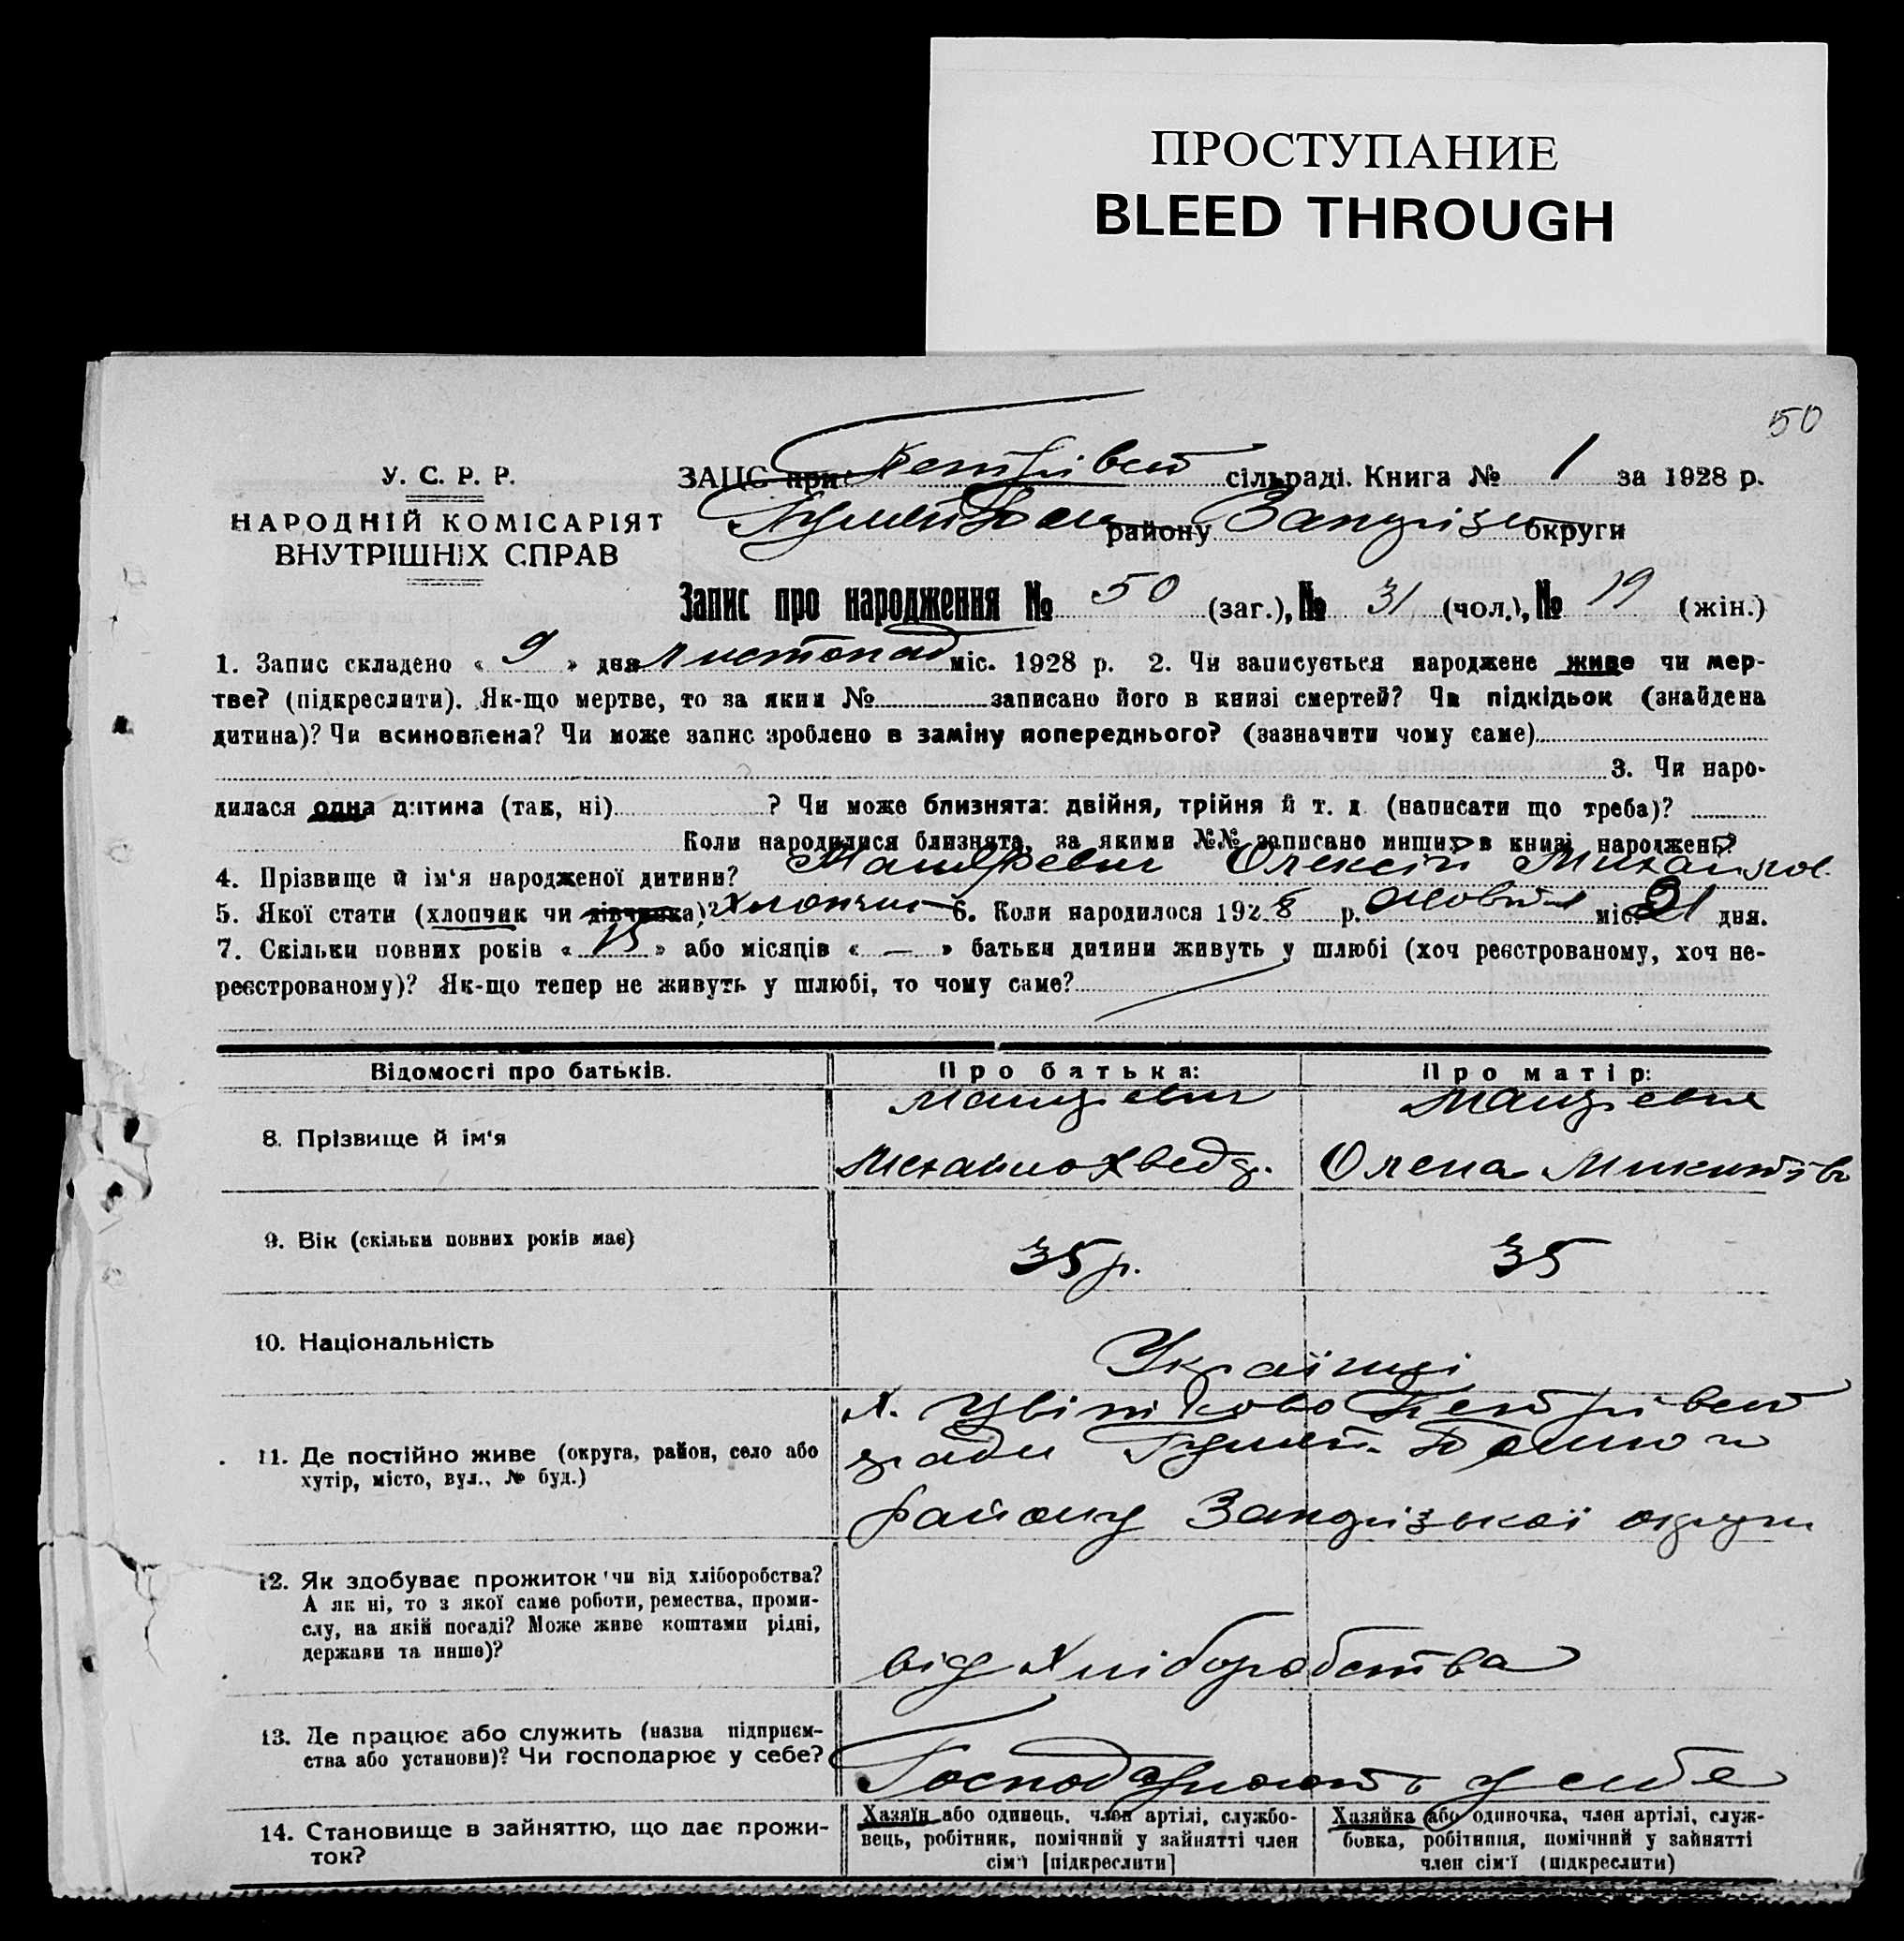 ПРОСТУПАНИЕ
BLEED THROUGH
50
У. С. Р. Р.
НАРОДНІЙ КОМІСАРІЯТ
ВНУТРІШНІХ СПРАВ
ЗАЦС при сільраді. Книга № 1 за 1928 р.
району Запоріз округи
Запис про народження № 50 (заг.), № 31 (чол.), № 19 (жін.)
1. Запис складено « 9 » дня листопад міс. 1928 р. 2. Чи записується народжене живе чи мер-
тве? (підкреслити). Як-що мертве, то за яким № записано його в книзі смертей? Чи підкідьок (знайдена
дитина)? Чи всиновлена? Чи може запис зроблено в заміну попереднього? (зазначити чому саме)
3. Чи наро-
дилася одна дитина (так, ні) ? Чи може близнята: двійня, трійня й т. д. (написати що треба)?
Коли народилися близнята, за якими №№ записано инших в книзі народжень?
4. Прізвище й ім'я народженої дитини? Олексій Михайлов.
5. Якої стати (хлопчик чи дівчинка)? Хлопчик 6. Коли народилося 1928 р. Жовтня міс. 31 дня.
7. Скільки повних років « 15 » або місяців « — » батьки дитини живуть у шлюбі (хоч реєстрованому, хоч не-
реєстрованому)? Як-що тепер не живуть у шлюбі, то чому саме?
Відомості про батьків. Про батька: Про матір:
8. Прізвище й ім'я
Михайло Хведр. Олена Микитів
9. Вік (скільки повних років має) 35 р. 35
10. Національність Українці
11. Де постійно живе (округа, район, село або
хутір, місто, вул., № буд.)
х. Цвітково
ради
району Запорізької округи
12. Як здобуває прожиток (чи від хліборобства?
А як ні, то з якої саме роботи, ремества, проми-
слу, на якій посаді? Може живе коштами рідні,
держави та инше)?
від Хліборобства
13. Де працює або служить (назва підприєм-
ства або установи)? Чи господарює у себе?
Господарюють у себе
14. Становище в зайняттю, що дає прожи-
ток?
Хазяїн або одинець, член артілі, службо-
вець, робітник, помічний у зайнятті член
сім'ї [підкреслити]
Хазяйка або одиночка, член артілі, служ-
бовка, робітниця, помічний у зайнятті
член сім'ї (підкреслити)